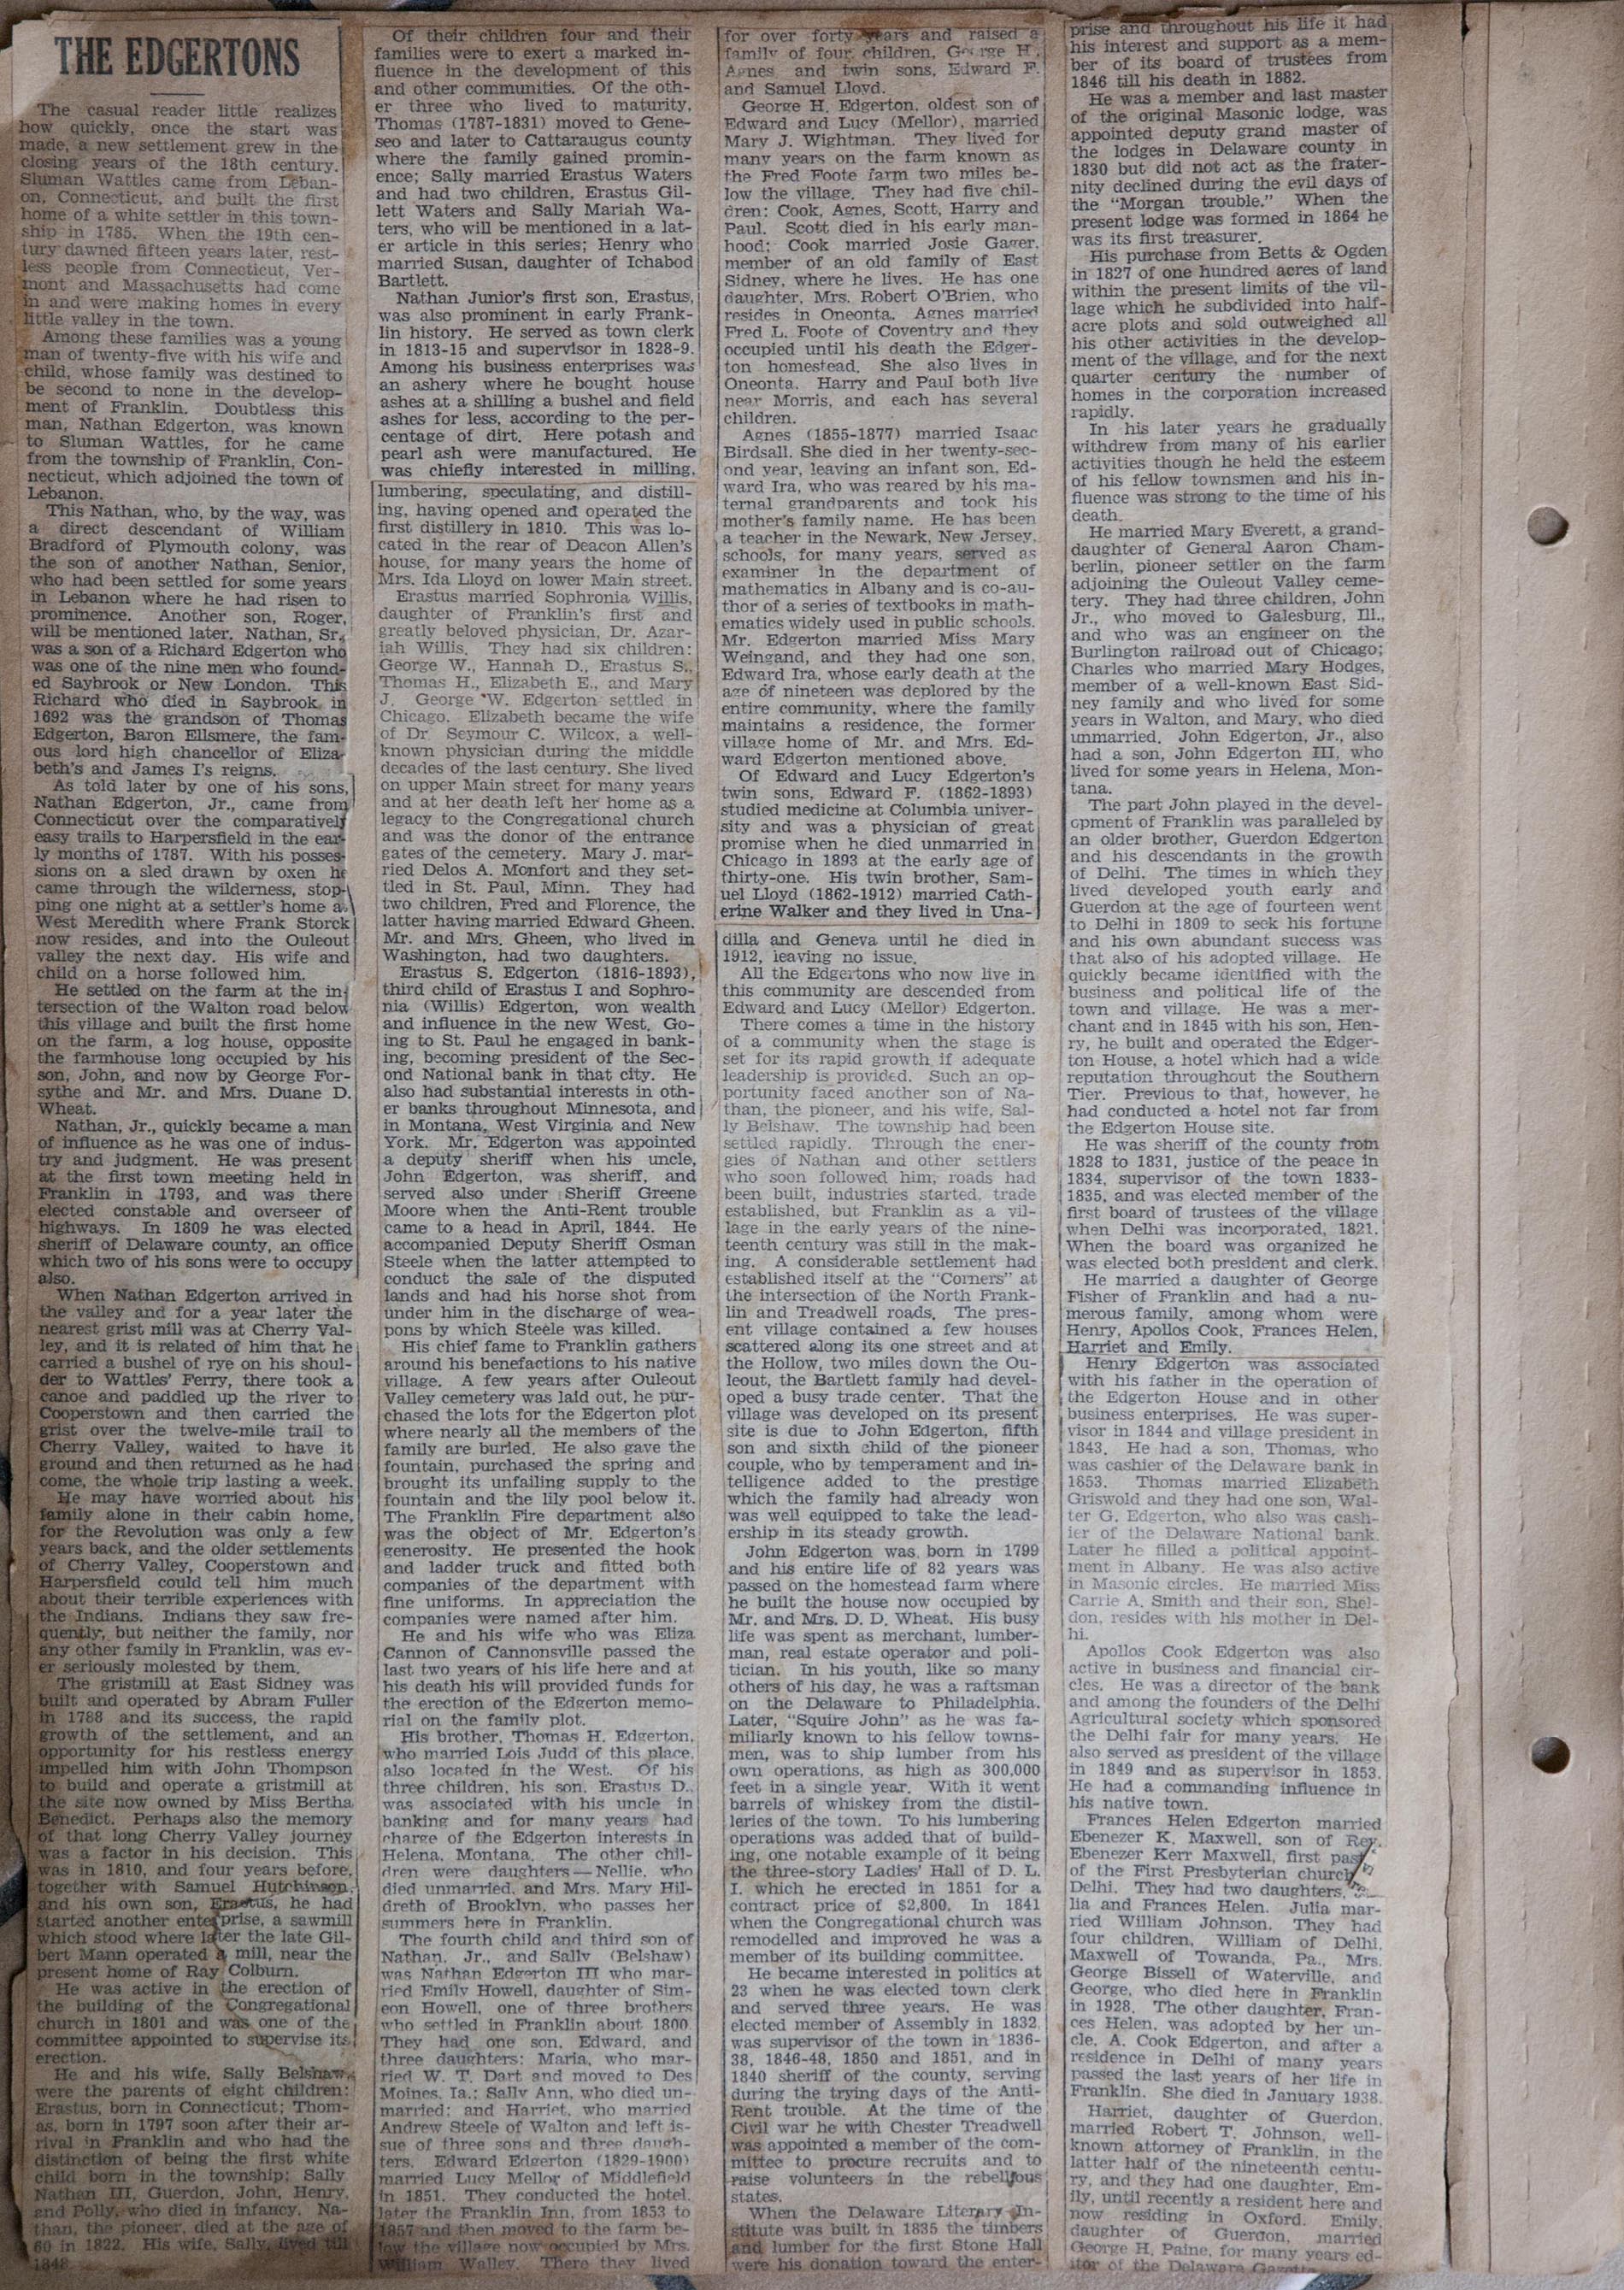 THE EDGERTONS
The casual reader little realizes
how quickly, once the start was
made, a new settlement grew in the
closing years of the 18th century.
Sluman Wattles came from Leban-
on, Connecticut, and built the first
home of a white settler in this town-
ship in 1785. When the 19th cen-
tury dawned fifteen years later, rest-
less people from Connecticut, Ver-
mont and Massachusetts had come
in and were making homes in every
little valley in the town.
Among these families was a young
man of twenty-five with his wife and
child, whose family was destined to
be second to none in the develop-
ment of Franklin. Doubtless this
man, Nathan Edgerton, was known
to Sluman Wattles, for he came
from the township of Franklin, Con-
necticut, which adjoined the town of
Lebanon.
This Nathan, who, by the way, was
a direct descendant of William
Bradford of Plymouth colony, was
the son of another Nathan, Senior,
who had been settled for some years
in Lebanon where he had risen to
prominence. Another son, Roger,
will be mentioned later. Nathan, Sr.,
was a son of a Richard Edgerton who
was one of the nine men who found-
ed Saybrook or New London. This
Richard who died in Saybrook in
1692 was the grandson of Thomas
Edgerton, Baron Ellsmere, the fam-
ous lord high chancellor of Eliza-
beth's and James I's reigns.
As told later by one of his sons,
Nathan Edgerton, Jr., came from
Connecticut over the comparatively
easy trails to Harpersfield in the ear-
ly months of 1787. With his posses-
sions on a sled drawn by oxen he
came through the wilderness, stop-
ping one night at a settler's home a
West Meredith where Frank Storck
now resides, and into the Ouleout
valley the next day. His wife and
child on a horse followed him.
He settled on the farm at the in-
tersection of the Walton road below
this village and built the first home
on the farm, a log house, opposite
the farmhouse long occupied by his
son, John, and now by George For-
sythe and Mr. and Mrs. Duane D.
Wheat.
Nathan, Jr., quickly became a man
of influence as he was one of indus-
try and judgment. He was present
at the first town meeting held in
Franklin in 1793, and was there
elected constable and overseer of
highways. In 1809 he was elected
sheriff of Delaware county, an office
which two of his sons were to occupy
also.
When Nathan Edgerton arrived in
the valley and for a year later the
nearest grist mill was at Cherry Val-
ley, and it is related of him that he
carried a bushel of rye on his shoul-
der to Wattles' Ferry, there took a
canoe and paddled up the river to
Cooperstown and then carried the
grist over the twelve-mile trail to
Cherry Valley, waited to have it
ground and then returned as he had
come, the whole trip lasting a week.
He may have worried about his
family alone in their cabin home,
for the Revolution was only a few
years back, and the older settlements
of Cherry Valley, Cooperstown and
Harpersfield could tell him much
about their terrible experiences with
the Indians. Indians they saw fre-
quently, but neither the family, nor
any other family in Franklin, was ev-
er seriously molested by them.
The gristmill at East Sidney was
built and operated by Abram Fuller
in 1788 and its success, the rapid
growth of the settlement, and an
opportunity for his restless energy
impelled him with John Thompson
to build and operate a gristmill at
the site now owned by Miss Bertha
Benedict. Perhaps also the memory
of that long Cherry Valley journey
was a factor in his decision. This
was in 1810, and four years before,
together with Samuel Hutchinson
and his own son, Erastus, he had
started another enterprise, a sawmill
which stood where later the late Gil-
bert Mann operated a mill, near the
present home of Ray Colburn.
He was active in the erection of
the building of the Congregational
church in 1801 and was one of the
committee appointed to supervise its
erection.
He and his wife, Sally Belshaw,
were the parents of eight children:
Erastus, born in Connecticut; Thom-
as, born in 1797 soon after their ar-
rival in Franklin and who had the
distinction of being the first white
child born in the township; Sally,
Nathan III, Guerdon, John, Henry,
and Polly, who died in infancy. Na-
than, the pioneer, died at the age of
60 in 1822. His wife, Sally, lived till
1848.
Of their children four and their
families were to exert a marked in-
fluence in the development of this
and other communities. Of the oth-
er three who lived to maturity,
Thomas (1787-1831) moved to Gene-
seo and later to Cattaraugus county
where the family gained promin-
ence; Sally married Erastus Waters
and had two children, Erastus Gil-
lett Waters and Sally Mariah Wa-
ters, who will be mentioned in a lat-
er article in this series; Henry who
married Susan, daughter of Ichabod
Bartlett.
Nathan Junior's first son, Erastus,
was also prominent in early Frank-
lin history. He served as town clerk
in 1813-15 and supervisor in 1828-9.
Among his business enterprises was
an ashery where he bought house
ashes at a shilling a bushel and field
ashes for less, according to the per-
centage of dirt. Here potash and
pearl ash were manufactured. He
was chiefly interested in milling,
lumbering, speculating, and distill-
ing, having opened and operated the
first distillery in 1810. This was lo-
cated in the rear of Deacon Allen's
house, for many years the home of
Mrs. Ida Lloyd on lower Main street.
Erastus married Sophronia Willis,
daughter of Franklin's first and
greatly beloved physician, Dr. Azar-
iah Willis. They had six children:
George W., Hannah D., Erastus S.,
Thomas H., Elizabeth E., and Mary
J. George W. Edgerton settled in
Chicago. Elizabeth became the wife
of Dr Seymour C. Wilcox, a well-
known physician during the middle
decades of the last century. She lived
on upper Main street for many years
and at her death left her home as a
legacy to the Congregational church
and was the donor of the entrance
gates of the cemetery. Mary J. mar-
ried Delos A. Monfort and they set-
tled in St. Paul, Minn. They had
two children, Fred and Florence, the
latter having married Edward Gheen.
Mr. and Mrs. Gheen, who lived in
Washington, had two daughters.
Erastus S. Edgerton (1816-1893),
third child of Erastus I and Sophro-
nia (Willis) Edgerton, won wealth
and influence in the new West. Go-
ing to St. Paul he engaged in bank-
ing, becoming president of the Sec-
ond National bank in that city. He
also had substantial interests in oth-
er banks throughout Minnesota, and
in Montana, West Virginia and New
York. Mr. Edgerton was appointed
a deputy sheriff when his uncle,
John Edgerton, was sheriff, and
served also under Sheriff Greene
Moore when the Anti-Rent trouble
came to a head in April, 1844. He
accompanied Deputy Sheriff Osman
Steele when the latter attempted to
conduct the sale of the disputed
lands and had his horse shot from
under him in the discharge of wea-
pons by which Steele was killed.
His chief fame to Franklin gathers
around his benefactions to his native
village. A few years after Ouleout
Valley cemetery was laid out, he pur-
chased the lots for the Edgerton plot
where nearly all the members of the
family are buried. He also gave the
fountain, purchased the spring and
brought its unfailing supply to the
fountain and the lily pool below it.
The Franklin Fire department also
was the object of Mr. Edgerton's
generosity. He presented the hook
and ladder truck and fitted both
companies of the department with
fine uniforms. In appreciation the
companies were named after him.
He and his wife who was Eliza
Cannon of Cannonsville passed the
last two years of his life here and at
his death his will provided funds for
the erection of the Edgerton memo-
rial on the family plot.
His brother, Thomas H. Edgerton,
who married Lois Judd of this place,
also located in the West. Of his
three children, his son, Erastus D.,
was associated with his uncle in
banking and for many years had
charge of the Edgerton interests in
Helena, Montana. The other chil-
dren were daughters—Nellie, who
died unmarried, and Mrs. Mary Hil-
dreth of Brooklyn, who passes her
summers here in Franklin.
The fourth child and third son of
Nathan, Jr., and Sally (Belshaw)
was Nathan Edgerton III who mar-
ried Emily Howell, daughter of Sim-
eon Howell, one of three brothers
who settled in Franklin about 1800.
They had one son, Edward, and
three daughters: Maria, who mar-
ried W. T. Dart and moved to Des
Moines, Ia.; Sally Ann, who died un-
married; and Harriet, who married
Andrew Steele of Walton and left is-
sue of three sons and three daugh-
ters. Edward Edgerton (1829-1900)
married Lucy Mellor of Middlefield
in 1851. They conducted the hotel,
later the Franklin Inn, from 1853 to
1857 and then moved to the farm be-
low the village now occupied by Mrs.
William Walley. There they lived
for over forty years and raised a
family of four children, George H.,
Agnes and twin sons, Edward F.
and Samuel Lloyd.
George H. Edgerton, oldest son of
Edward and Lucy (Mellor), married
Mary J. Wightman. They lived for
many years on the farm known as
the Fred Foote farm two miles be-
low the village. They had five chil-
dren: Cook, Agnes, Scott, Harry and
Paul. Scott died in his early man-
hood; Cook married Josie Gager,
member of an old family of East
Sidney, where he lives. He has one
daughter, Mrs. Robert O'Brien, who
resides in Oneonta. Agnes married
Fred L. Foote of Coventry and they
occupied until his death the Edger-
ton homestead. She also lives in
Oneonta. Harry and Paul both live
near Morris, and each has several
children.
Agnes (1855-1877) married Isaac
Birdsall. She died in her twenty-sec-
ond year, leaving an infant son, Ed-
ward Ira, who was reared by his ma-
ternal grandparents and took his
mother's family name. He has been
a teacher in the Newark, New Jersey,
schools, for many years, served as
examiner in the department of
mathematics in Albany and is co-au-
thor of a series of textbooks in math-
ematics widely used in public schools.
Mr. Edgerton married Miss Mary
Weingand, and they had one son,
Edward Ira, whose early death at the
age of nineteen was deplored by the
entire community, where the family
maintains a residence, the former
village home of Mr. and Mrs. Ed-
ward Edgerton mentioned above.
Of Edward and Lucy Edgerton's
twin sons, Edward F. (1862-1893)
studied medicine at Columbia univer-
sity and was a physician of great
promise when he died unmarried in
Chicago in 1893 at the early age of
thirty-one. His twin brother, Sam-
uel Lloyd (1862-1912) married Cath-
erine Walker and they lived in Una-
dilla and Geneva until he died in
1912, leaving no issue.
All the Edgertons who now live in
this community are descended from
Edward and Lucy (Mellor) Edgerton.
There comes a time in the history
of a community when the stage is
set for its rapid growth if adequate
leadership is provided. Such an op-
portunity faced another son of Na-
than, the pioneer, and his wife, Sal-
ly Belshaw. The township had been
settled rapidly. Through the ener-
gies of Nathan and other settlers
who soon followed him, roads had
been built, industries started, trade
established, but Franklin as a vil-
lage in the early years of the nine-
teenth century was still in the mak-
ing. A considerable settlement had
established itself at the "Corners" at
the intersection of the North Frank-
lin and Treadwell roads. The pres-
ent village contained a few houses
scattered along its one street and at
the Hollow, two miles down the Ou-
leout, the Bartlett family had devel-
oped a busy trade center. That the
village was developed on its present
site is due to John Edgerton, fifth
son and sixth child of the pioneer
couple, who by temperament and in-
telligence added to the prestige
which the family had already won
was well equipped to take the lead-
ership in its steady growth.
John Edgerton was born in 1799
and his entire life of 82 years was
passed on the homestead farm where
he built the house now occupied by
Mr. and Mrs. D. D. Wheat. His busy
life was spent as merchant, lumber-
man, real estate operator and poli-
tician. In his youth, like so many
others of his day, he was a raftsman
on the Delaware to Philadelphia.
Later, "Squire John" as he was fa-
miliarly known to his fellow towns-
men, was to ship lumber from his
own operations, as high as 300,000
feet in a single year. With it went
barrels of whiskey from the distil-
leries of the town. To his lumbering
operations was added that of build-
ing, one notable example of it being
the three-story Ladies' Hall of D. L.
I. which he erected in 1851 for a
contract price of $2,800. In 1841
when the Congregational church was
remodelled and improved he was a
member of its building committee.
He became interested in politics at
23 when he was elected town clerk
and served three years. He was
elected member of Assembly in 1832,
was supervisor of the town in 1836-
38, 1846-48, 1850 and 1851, and in
1840 sheriff of the county, serving
during the trying days of the Anti-
Rent trouble. At the time of the
Civil war he with Chester Treadwell
was appointed a member of the com-
mittee to procure recruits and to
raise volunteers in the rebellious
states.
When the Delaware Literary In-
stitute was built in 1835 the timbers
and lumber for the first Stone Hall
were his donation toward the enter-
prise and throughout his life it had
his interest and support as a mem-
ber of its board of trustees from
1846 till his death in 1882.
He was a member and last master
of the original Masonic lodge, was
appointed deputy grand master of
the lodges in Delaware county in
1830 but did not act as the frater-
nity declined during the evil days of
the "Morgan trouble." When the
present lodge was formed in 1864 he
was its first treasurer.
His purchase from Betts & Ogden
in 1827 of one hundred acres of land
within the present limits of the vil-
lage which he subdivided into half-
acre plots and sold outweighed all
his other activities in the develop-
ment of the village, and for the next
quarter century the number of
homes in the corporation increased
rapidly.
In his later years he gradually
withdrew from many of his earlier
activities though he held the esteem
of his fellow townsmen and his in-
fluence was strong to the time of his
death.
He married Mary Everett, a grand-
daughter of General Aaron Cham-
berlin, pioneer settler on the farm
adjoining the Ouleout Valley ceme-
tery. They had three children, John
Jr., who moved to Galesburg, Ill.,
and who was an engineer on the
Burlington railroad out of Chicago;
Charles who married Mary Hodges,
member of a well-known East Sid-
ney family and who lived for some
years in Walton, and Mary, who died
unmarried. John Edgerton, Jr., also
had a son, John Edgerton III, who
lived for some years in Helena, Mon-
tana.
The part John played in the devel-
opment of Franklin was paralleled by
an older brother, Guerdon Edgerton
and his descendants in the growth
of Delhi. The times in which they
lived developed youth early and
Guerdon at the age of fourteen went
to Delhi in 1809 to seek his fortune
and his own abundant success was
that also of his adopted village. He
quickly became identified with the
business and political life of the
town and village. He was a mer-
chant and in 1845 with his son, Hen-
ry, he built and operated the Edger-
ton House, a hotel which had a wide
reputation throughout the Southern
Tier. Previous to that, however, he
had conducted a hotel not far from
the Edgerton House site.
He was sheriff of the county from
1828 to 1831, justice of the peace in
1834, supervisor of the town 1833-
1835, and was elected member of the
first board of trustees of the village
when Delhi was incorporated, 1821.
When the board was organized he
was elected both president and clerk.
He married a daughter of George
Fisher of Franklin and had a nu-
merous family, among whom were
Henry, Apollos Cook, Frances Helen,
Harriet and Emily.
Henry Edgerton was associated
with his father in the operation of
the Edgerton House and in other
business enterprises. He was super-
visor in 1844 and village president in
1843. He had a son, Thomas, who
was cashier of the Delaware bank in
1853. Thomas married Elizabeth
Griswold and they had one son, Wal-
ter G. Edgerton, who also was cash-
ier of the Delaware National bank.
Later he filled a political appoint-
ment in Albany. He was also active
in Masonic circles. He married Miss
Carrie A. Smith and their son, Shel-
don, resides with his mother in Del-
hi.
Apollos Cook Edgerton was also
active in business and financial cir-
cles. He was a director of the bank
and among the founders of the Delhi
Agricultural society which sponsored
the Delhi fair for many years. He
also served as president of the village
in 1849 and as supervisor in 1853.
He had a commanding influence in
his native town.
Frances Helen Edgerton married
Ebenezer K. Maxwell, son of Rev.
Ebenezer Kerr Maxwell, first past
of the First Presbyterian church
Delhi. They had two daughters,
lia and Frances Helen. Julia mar-
ried William Johnson. They had
four children, William of Delhi,
Maxwell of Towanda, Pa., Mrs.
George Bissell of Waterville, and
George, who died here in Franklin
in 1928. The other daughter, Fran-
ces Helen, was adopted by her un-
cle, A. Cook Edgerton, and after a
residence in Delhi of many years
passed the last years of her life in
Franklin. She died in January 1938.
Harriet, daughter of Guerdon,
married Robert T. Johnson, well-
known attorney of Franklin, in the
latter half of the nineteenth centu-
ry, and they had one daughter, Em-
ily, until recently a resident here and
now residing in Oxford. Emily,
daughter of Guerdon, married
George H. Paine, for many years ed-
itor of the Delaware Gazette